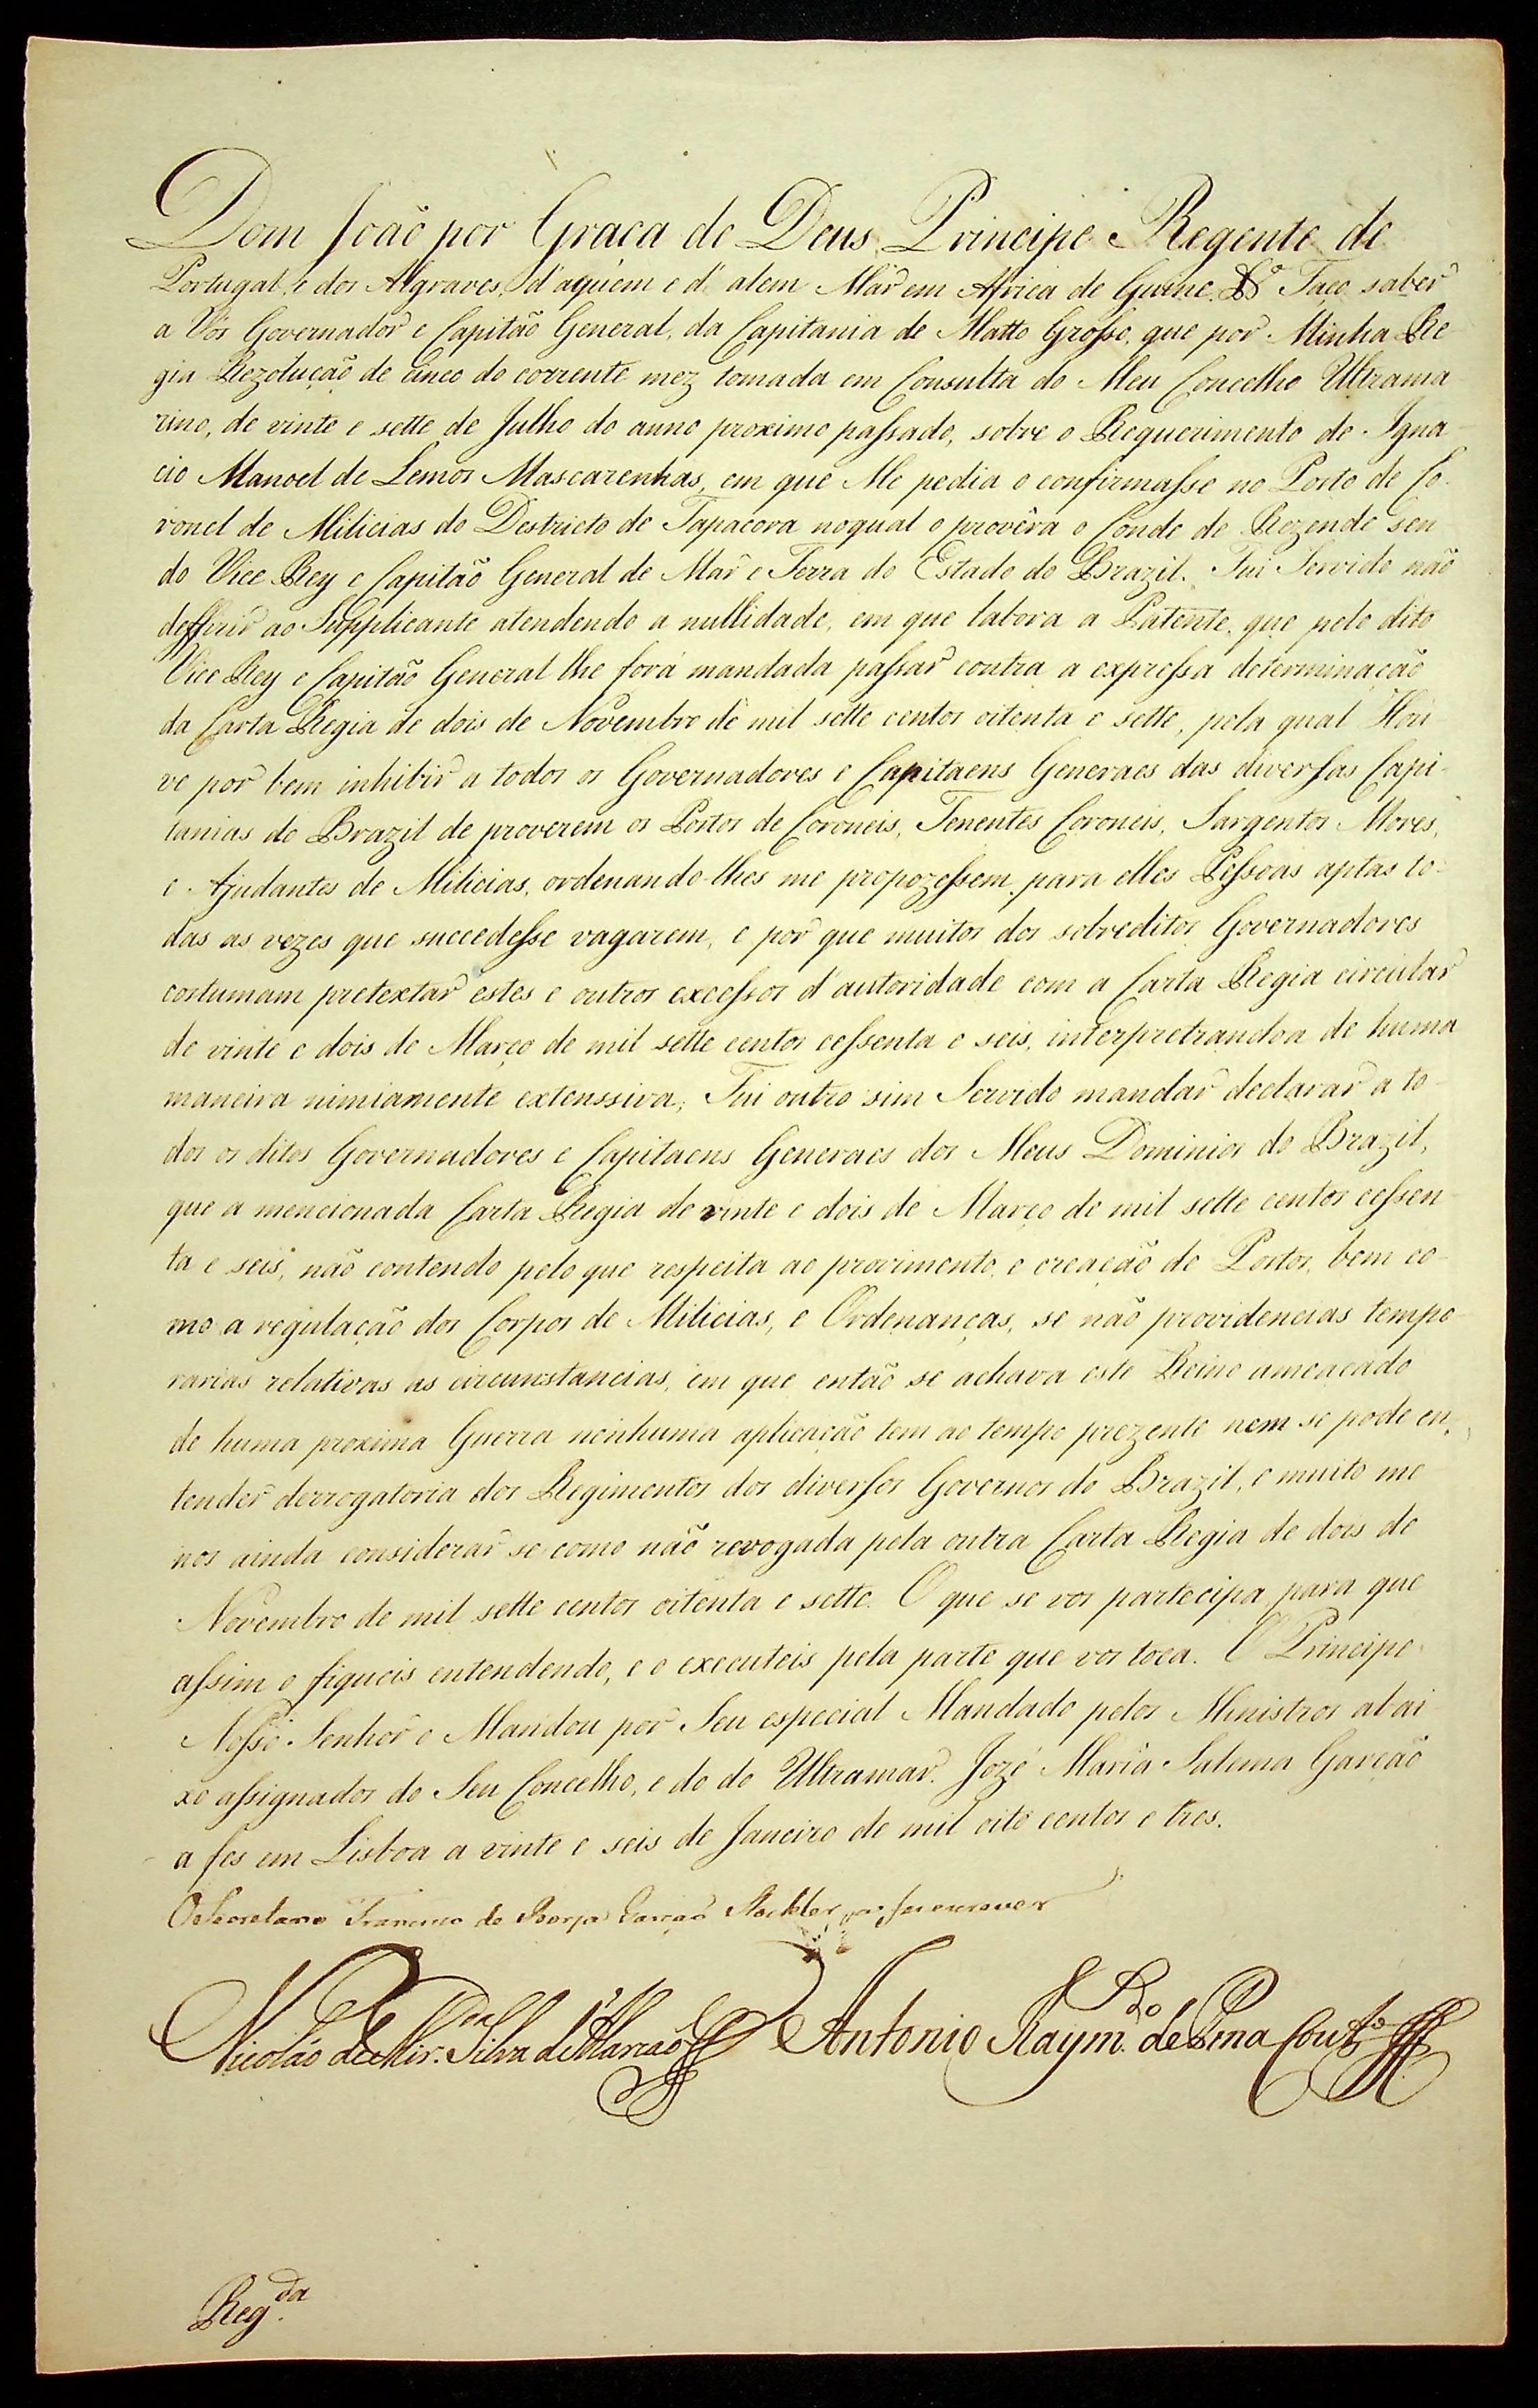 Dom João por Graça de Deus Principe Regente de
Portugal, e dos Algraves, d'aquem e d'alem Mar em Africa de Guine &ª Faço saber
a Vós Governador e Capitão General, da Capitania de Matto Grosso, que por Minha Re-
gia Rezolução de cinco do corrente mez tomada em Consulta do Meu Concelho Ultrama-
rino, de vinte e sette de Julho do anno proximo passado, sobre o Requerimento de Igna-
cio Manoel de Lemos Mascarenhas, em que Me pedia o confirmasse no Posto de Co-
ronel de Milicias do Destricto de Tapacora noqual o provêra o Conde de Rezende sen-
do Vice Rey e Capitão General de Mar e Terra do Estado do Brazil. Fui Servido não
defferir ao Supplicante atendendo a nullidade, em que labora a Patente, que pelo dito
Vice Rey e Capitão General lhe forá mandada passar contra a expressa determinação
da Carta Regia de dois de Novembro de mil sette centos oitenta e sette, pela qual Hou-
ve por bem inhibir a todos os Governadores e Capitaens Generaes das diversas Capi-
tanias do Brazil de proverem os Postos de Coroneis, Tenentes Coroneis, Sargentos Mores,
e Ajudantes de Milicias, ordenando-lhes me propozessem para elles Pessoas aptas to-
das as vezes que succedesse vagarem, e por que muitos dos sobreditos Governadores
costumam pretextar estes e outros excessos d'autoridade com a Carta Regia circular
de vinte e dois de Março de mil sette centos cessenta e seis, interpretrandoa de huma
maneira nimiamente extenssiva; Fui outro sim Servido mandar declarar a to-
dos os ditos Governadores e Capitaens Generaes dos Meus Dominios do Brazil,
que a mencionada Carta Regia de vinte e dois de Março de mil sette centos cessen-
ta e seis, não contendo pelo que respeita ao provimento, e creação de Postos, bem co-
mo a regulação dos Corpos de Milicias, e Ordenanças, se não providencias tempo-
rarias relativas as circunstancias, em que então se achava este Reino ameaçado
de huma proxima Guerra nenhuma aplicação tem ao tempo prezente nem se pode en-
tender derrogatoria dos Regimentos dos diversos Governos do Brazil, e muito me-
nos ainda considerar se como não revogada pela outra Carta Regia de dois de
Novembro de mil sette centos oitenta e sette. O que se vos partecipa para que
assim o fiqueis entendendo, e o executeis pela parte que vos toca. O Principe
Nosso Senhor o Mandou por Seu especial Mandado pelos Ministros abai-
xo assignados do Seu Concelho, e do do Ultramar. Jozé Maria Salema Garção
a fes em Lisboa a vinte e seis de Janeiro de mil oito centos e tres.
O Secretario Francisco de Borja Garção Stockler a fes escrever
Nicoláo de Mir.da Silva d'Alarcaõ Antonio Raym.do de Pina Cout.o
Reg.da